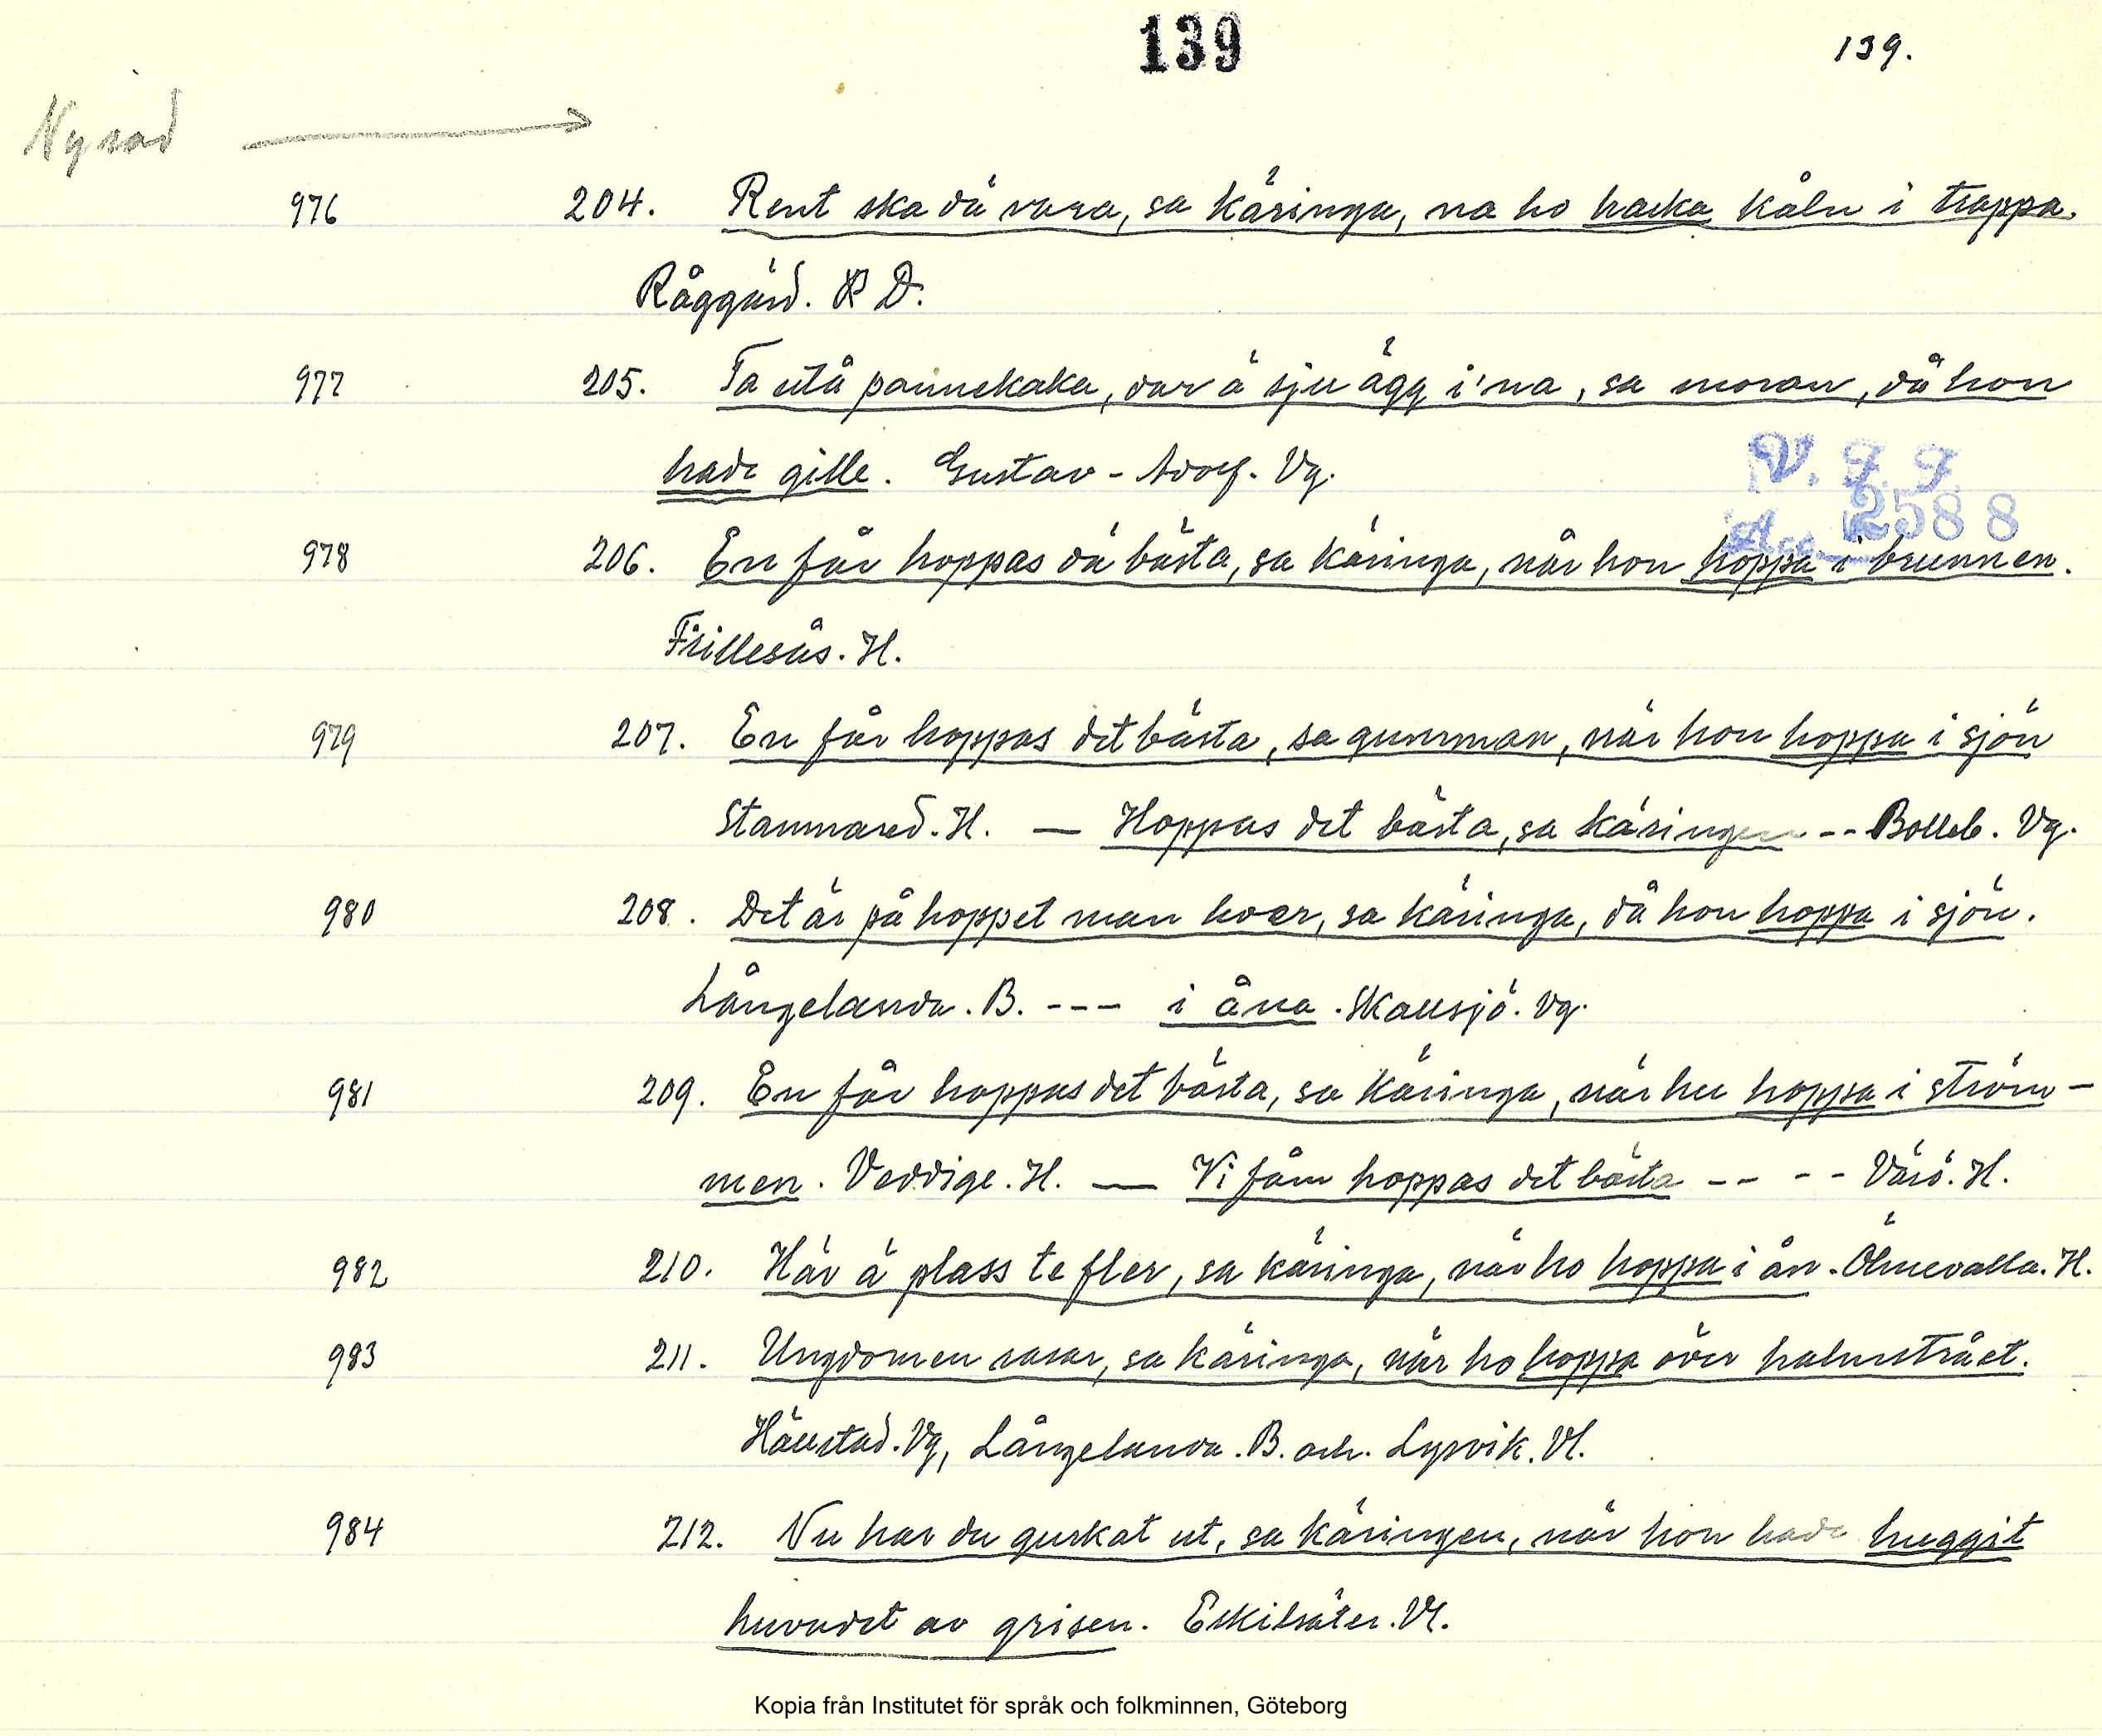 139
139.
Ny rad
976 204. Rent ska dä vara, sa käringa, na ho hacka kåln i trappa.
Råggärd. D.
977 205. Ta utå pannekaka, dar ä sju ägg i'na, sa moran, då hon
hade gille. Gustav-Adolf. Vg.
V. F. F.
Acc. 2588
978 206. En får hoppas dä bästa, sa käringa, når hon hoppa i brunnen.
Frillesås. H.
979 207. En får hoppas det bästa, sa gumman, när hon hoppa i sjön
Stamnared. H. — Hoppas det bästa, sa käringen -- Bolleb. Vg.
980 208. Det är på hoppet man lever, sa käringa, då hon hoppa i sjön.
Långelanda. B. --- i åna. Skallsjö. Vg.
981 209. En får hoppas det bästa, sa käringa, när hu hoppa i ström-
men. Veddige. H. — Vi fåm hoppas det bästa -- -- Värö. H.
982 210. Här ä plass te fler, sa käringa, när ho hoppa i ån. Ölmevalla. H.
983 211. Ungdomen rasar, sa käringa, när ho hoppa över halmstrået.
Hällstad. Vg, Långelanda. B. och. Lysvik. Vl.
984 212. Nu har du gurkat ut, sa käringen, när hon hade huggit
huvudet av grisen. Eskilsäter. Vl.
Kopia från Institutet för språk och folkminnen, Göteborg